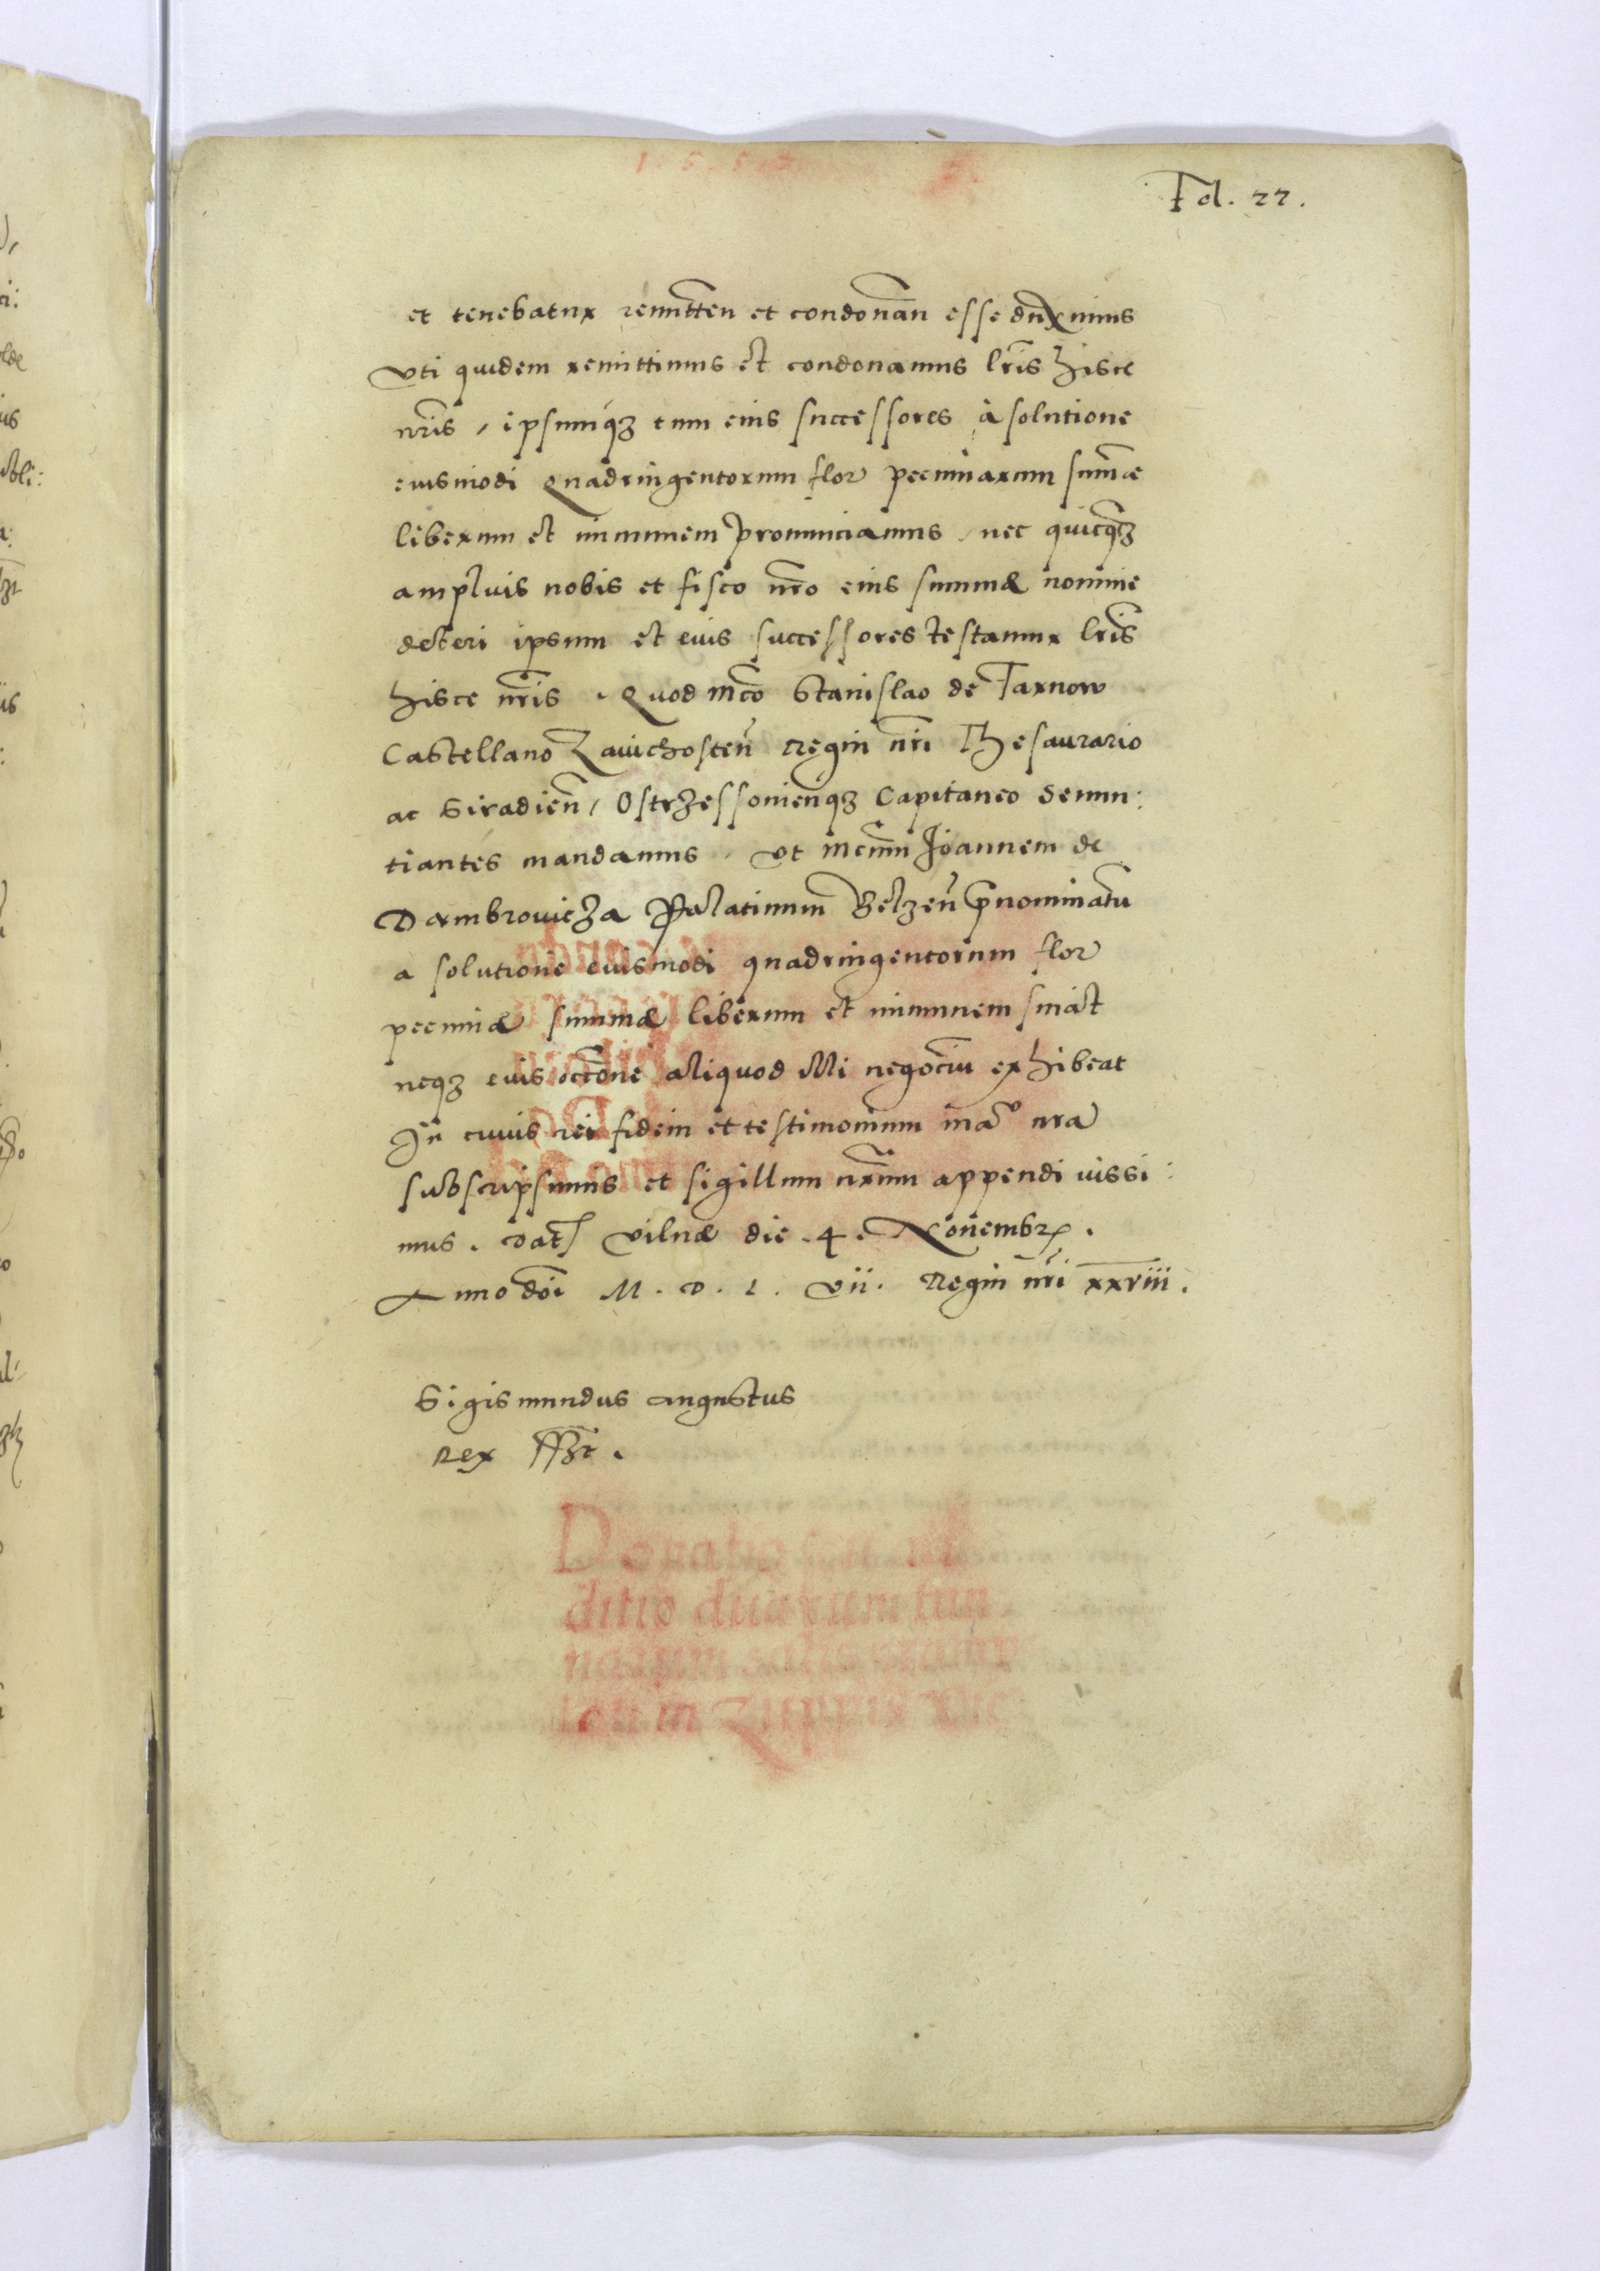 Fol. 22.
et tenebatur remitten et condonan esse duximus
vti quidem remittimus et condonamus lris hisce
nris, ipsumqz cum eius successores à solutione
eiusmodi quadringentorum flor pecuniarum summae
liberum et immunem pronunciamus, nec quicqz
amplius nobis et fisco nro eius summae nomine
deberi ipsum et eius successores testamur lris
hisce nris. Quod mco Stanislao de Tarnow
Castellano Zawichosten Regni nri Thesaurario
ac Siradien, Ostrzessoniensqz Capitaneo denun:
tiantes mandamus, vt mcum Joannem de
Dambrovicza Palatinum Belzen prenominatu
a solutione eiusmodi quadringentorum flor
pecuniae summae liberum et immunem sinat
neqz eius occone aliquod illi negociu exhibeat
In cuius rei fidem et testimonium manu nra
subscripsimus et sigillum nrum appendi iussi:
mus. Dat Vilnae die .4. Nouembr.
Anno doi M. D. L. vii. Regni nri xxviii.
Sigismundus augustus
Rex sszt.